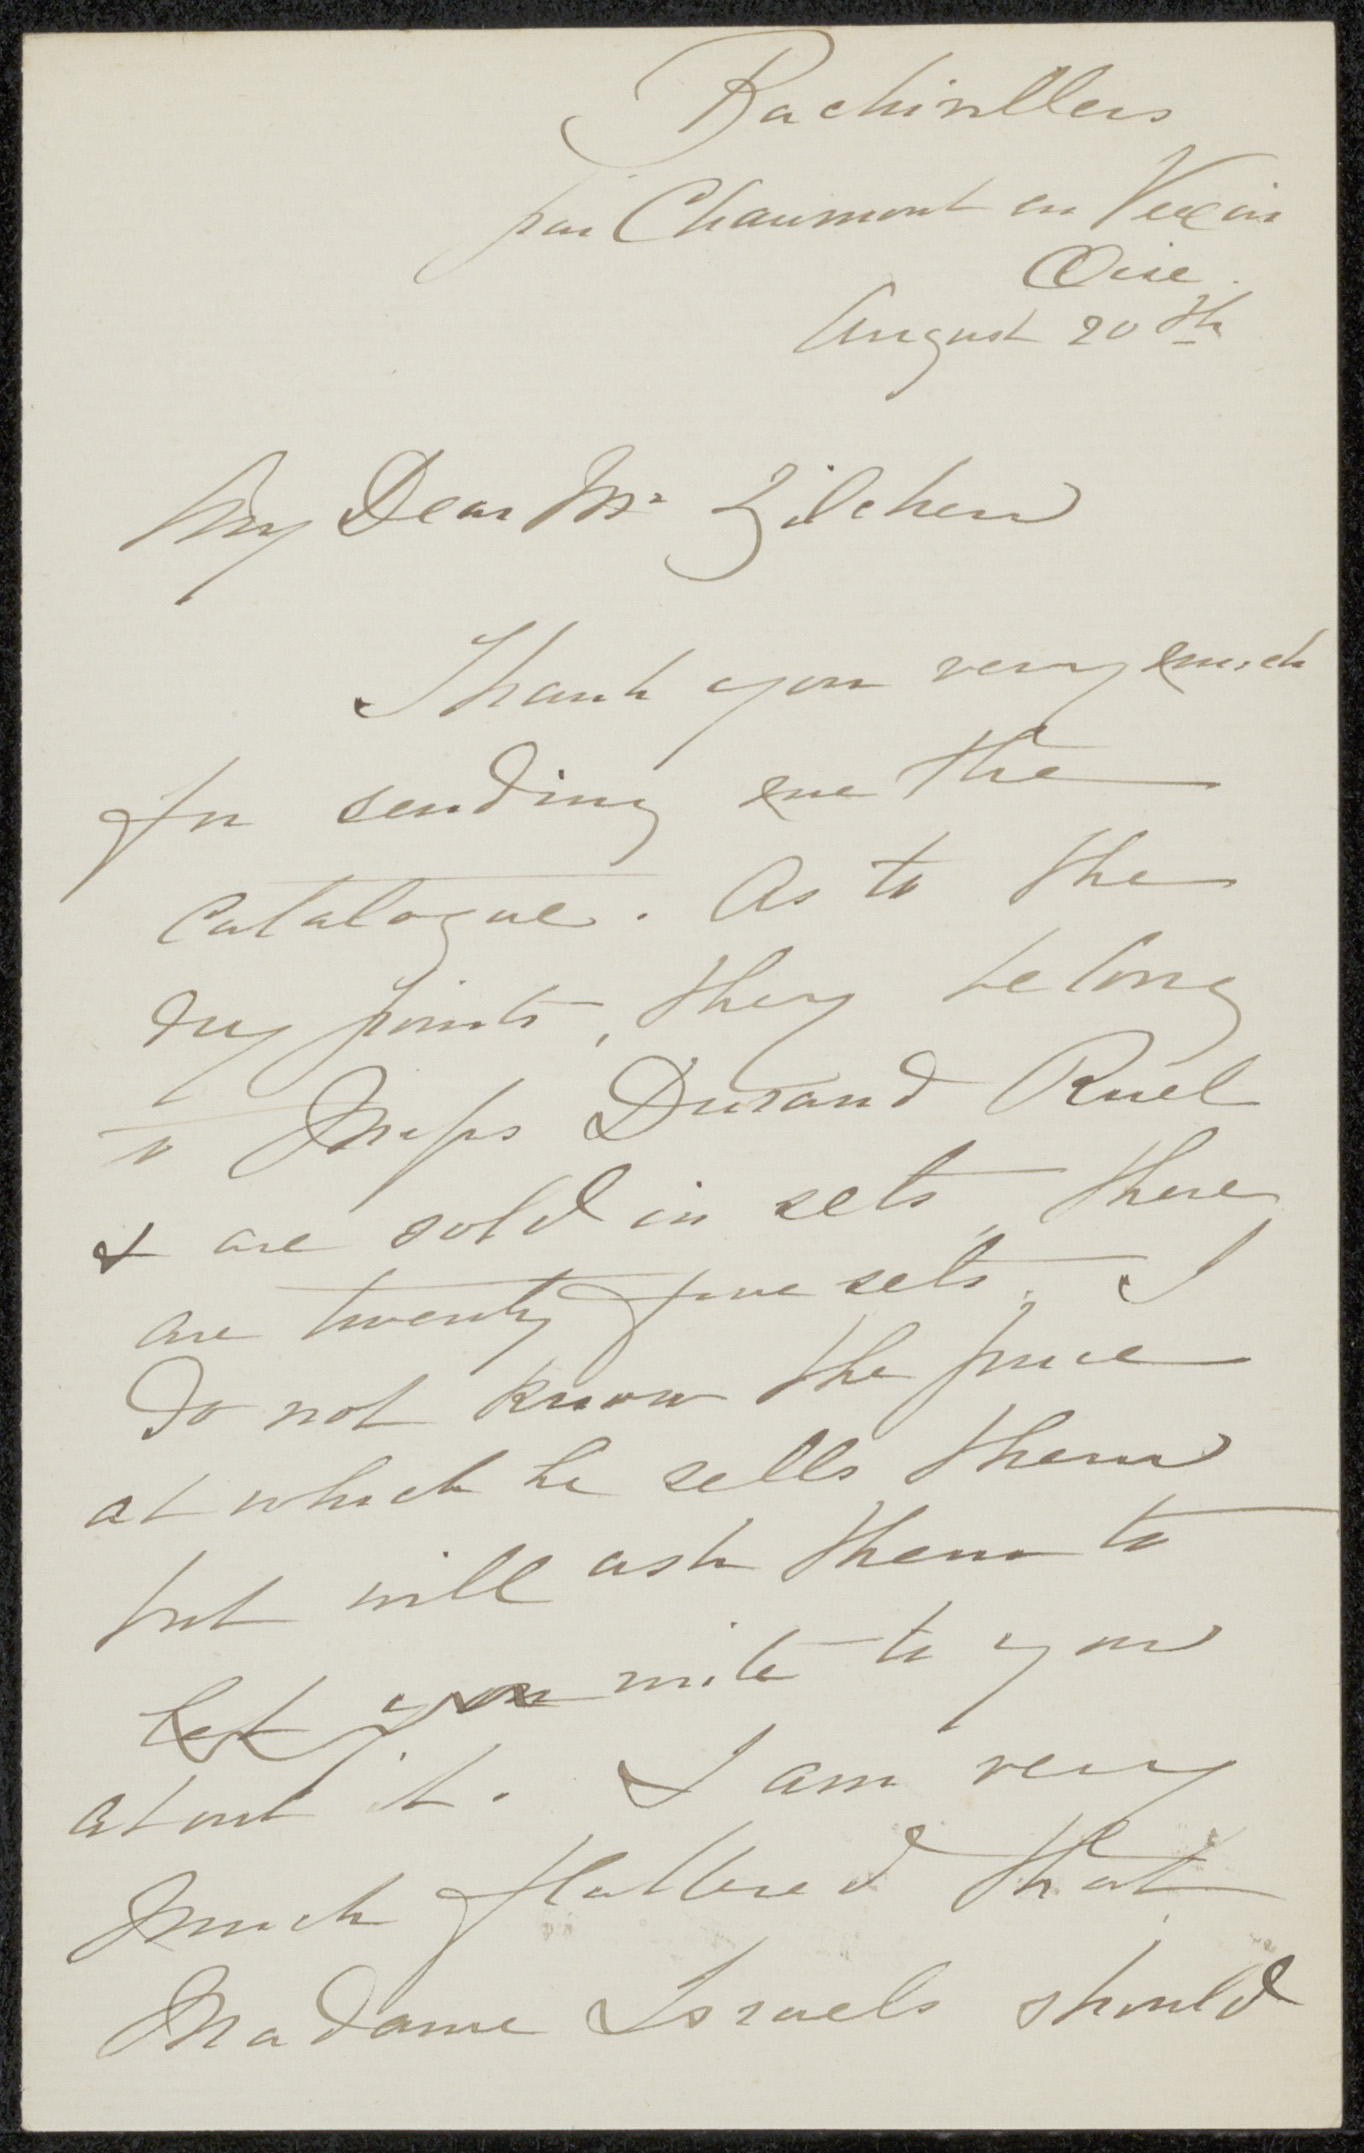 Bachivillers
par Chaumont en Vexin
Oise.
August 20th
My Dear Mr Zilcken
Thank you very much
for sending me the
catalogue. As to the
dry points, they belong
to Mess Durand Ruel
& are sold in sets, there
are twenty five sets. I
do not know the price
at which he sells them
but will ask them to
let you write to you
about it. I am very
much flattered that
Madame Israels should